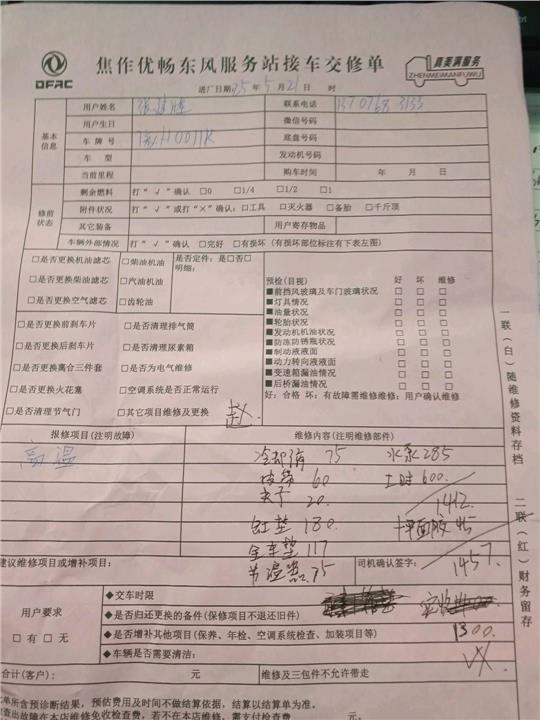 DFAC
焦作优畅东风服务站接车交修单
真美满服务
ZHENMEIMANFUWU
进厂日期: 25 年 5 月 21 日 时
基本信息
用户姓名 联系电话
用户生日 微信号码
车牌号 底盘号码
车型 发动机号码
当前里程 购车时间 年 月 日
修前状态
剩余燃料 打“√”确认 □0 □1/4 □1/2 □1
附件状况 打“√”或打“×”确认:□工具 □灭火器 □备胎 □千斤顶
其它装备 用户寄存物品
车辆外部情况 打“√”确认 □完好 □有损坏(有损坏部位标注有下表左图)
□是否更换机油滤芯 □柴油机油 是否定件:是□否□
□是否更换柴油滤芯 □汽油机油 明细:
□是否更换空气滤芯 □齿轮油
□是否更换前刹车片 □是否清理排气筒
□是否更换后刹车片 □是否清理尿素箱
□是否更换离合三件套 □是否为电气维修
□是否更换火花塞 □空调系统是否正常运行
□是否清理节气门 □其它项目维修及更换 赵
预检(目视) 好 坏 维修
■前挡风玻璃及车门玻璃状况 □ □ □
■灯具情况 □ □ □
■油量状况 □ □ □
■轮胎状况 □ □ □
■发动机机油状况 □ □ □
■防冻防锈瓶状况 □ □ □
■制动液液面 □ □ □
■动力转向液液面 □ □ □
■变速箱漏油情况 □ □ □
■后桥漏油情况 □ □ □
好:合格 坏:有故障需维修维修:用户确认维修
报修项目(注明故障) 维修内容(注明维修部件)
高温 冷却液 75 水泵285
皮带 60 工时 600.
夹子 20. 1412.
缸垫 180. 平面胶 45
全车垫 117 1457.
节温器 75
建议维修项目或增补项目: 司机确认签字:
用户要求
□有 □无
◆交车时限
◆是否归还更换的备件(保修项目不退还旧件)
◆是否增补其他项目(保养、年检、空调系统检查、加装项目等) 1300.
◆车辆是否需要清洁:
合计(客户): 元 维修及三包件不允许带走
单所含预诊断结果,预估费用及时间不做结算依据,结算以结算单为准。
查出故障在本店维修免收检查费,若不在本店维修,需支付检查费
一联(白)随维修资料存档
二联(红)财务留存